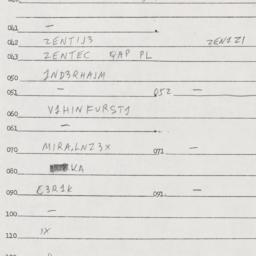 041 —
042 ZENTIJ3 ZEN1Z1
043 ZENTEC QAP PL
050 JND3RHAJM
051 — 052 —
060 V1HINFURST1
061 —
070 MIRA,LNZ3X 071 —
080 KA
090 E3R1K 091 —
100 —
110 IX